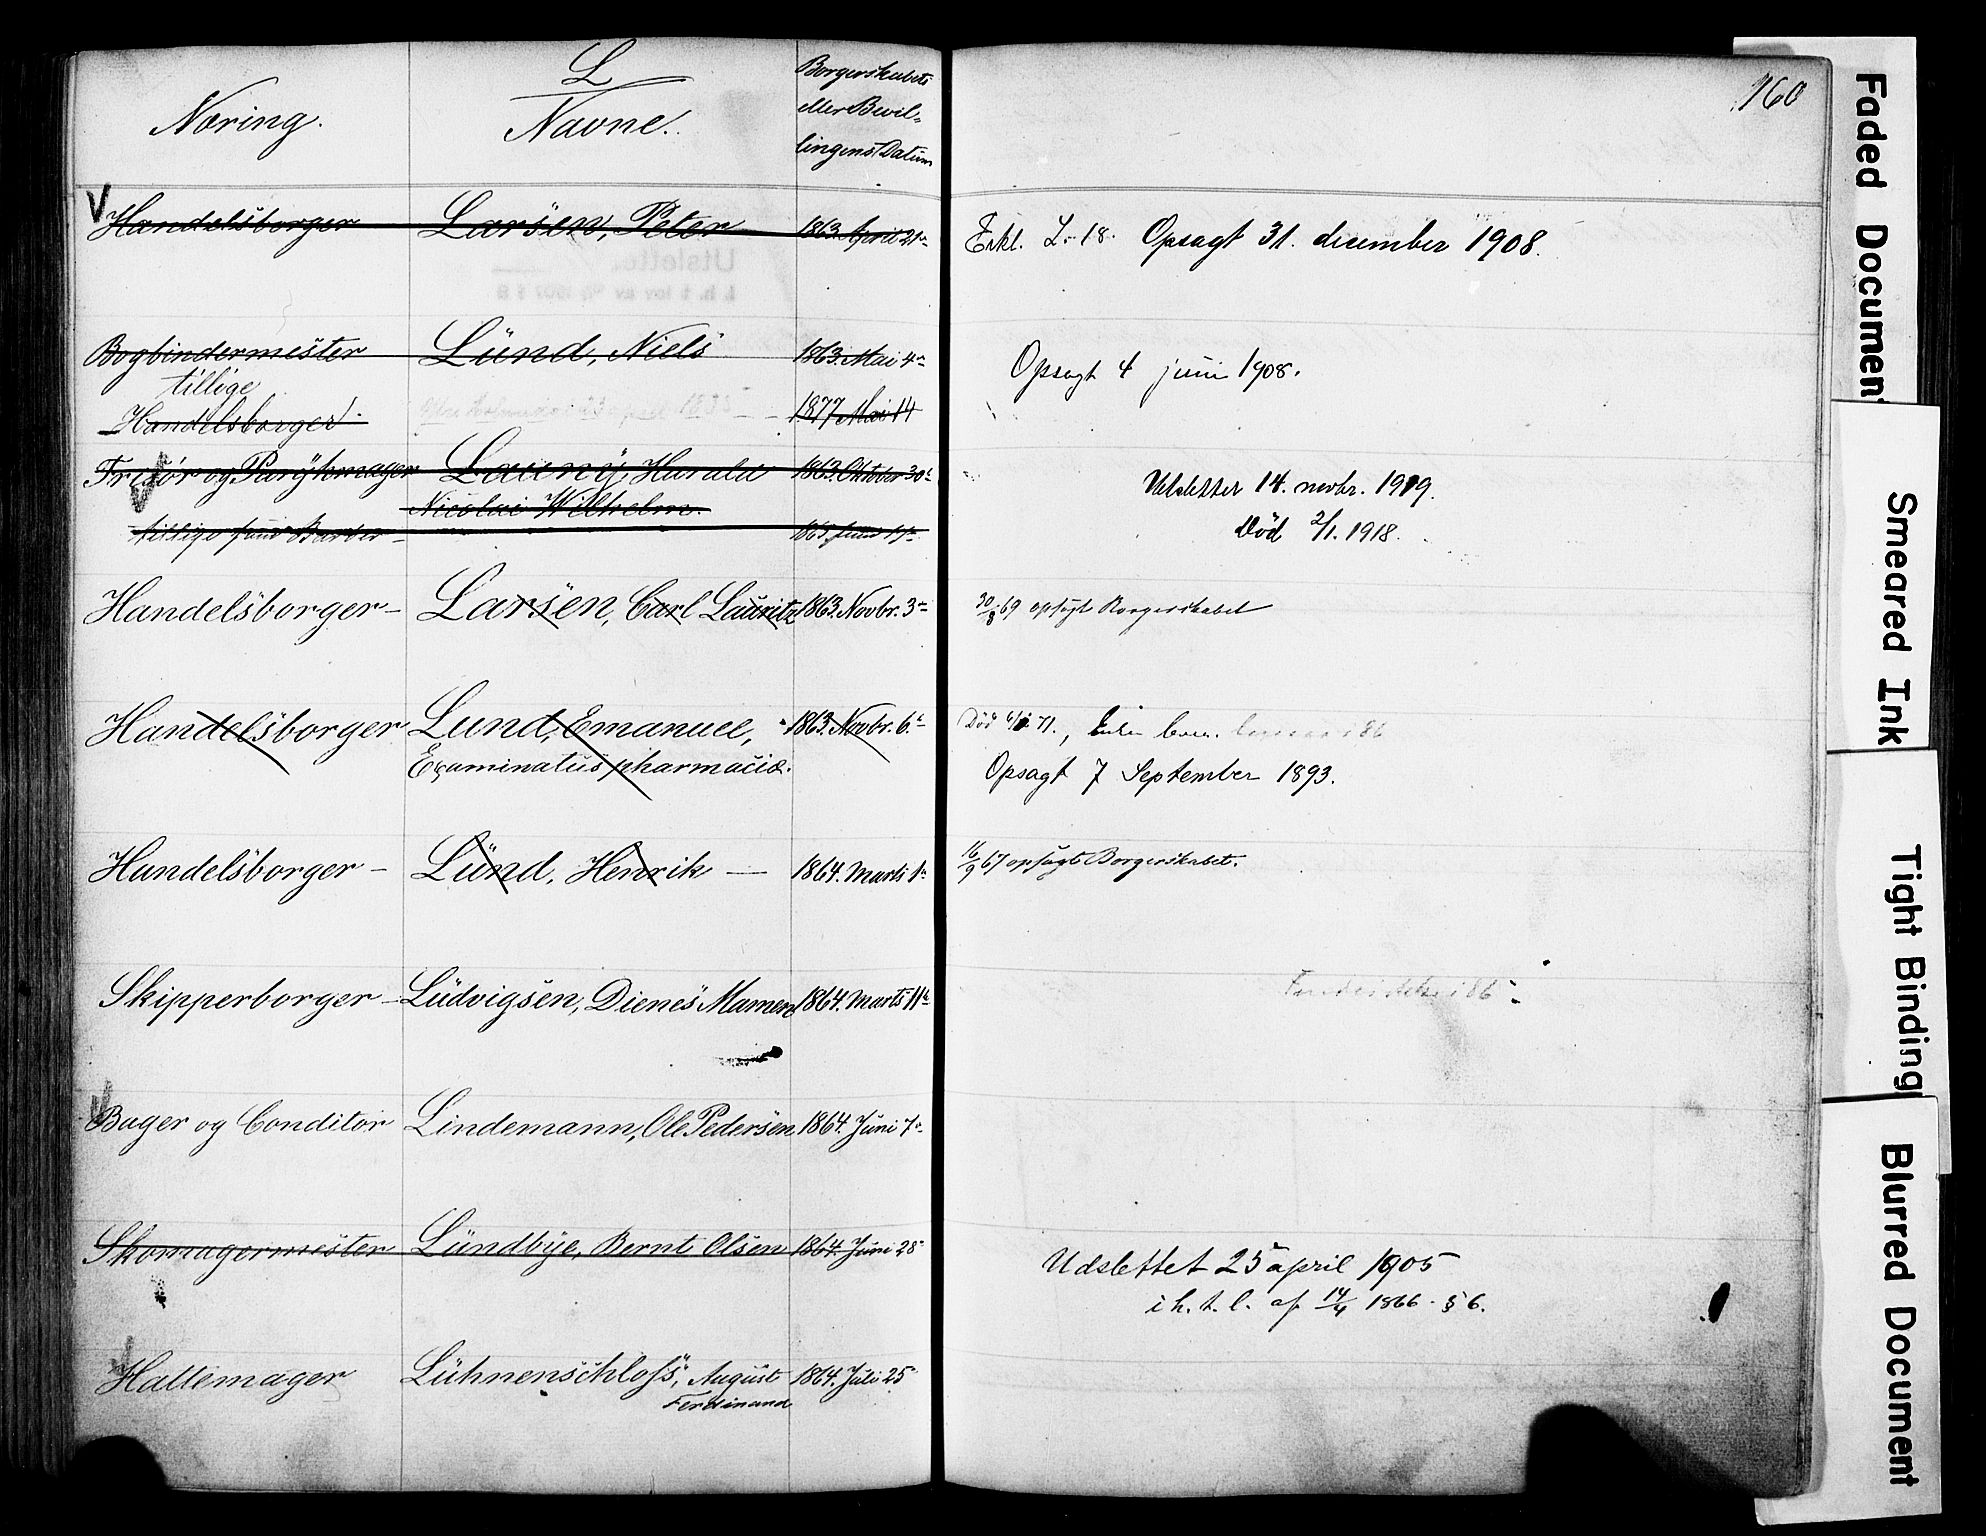 L
Næring.
Navne.
Borgerskabets
eller Bevil-
lingens Datum
160
Handelsborger Larsen, Peter 1863. April 21
L. 18. Opsagt 31. december 1908.
Bogbindermester Lund, Niels 1863. Mai 4
Opsagt 4 juni 1908.
tillige
Handelsborger 1877 Mai 14
Frisör og Parykmager Harald 1863. Oktober 30
Nicolai Wilhelm.
Udslettet 14. novbr. 1919.
tillige Barber 1865 Juni
Död 2/1. 1918.
Handelsborger - Larsen, Carl Lauritz 1863. Novbr. 3
30/8 69 opsagt Borgerskabet
Handelsborger Lund, Emanuel, 1863. Novbr. 6
Död 71.
Examinatus pharmaciæ.
Opsagt 7 September 1893.
Handelsborger - Lund, Henrik — 1864. Marts 1
16/9 67 opsagt Borgerskabet.
Skipperborger - Ludvigsen, Dienes Mamen 1864. Marts 11
Bager og Conditor Lindemann, Ole Pedersen 1864. Juni 7
Skomagermester Lundbye, Bernt Olsen 1864. Juni 28
Udslettet 25 april 1905
i h. t. l. af 14/4 1866 § 6.
Hattemager Lühnenschloss, August 1864. Juli 25
Ferdinand
Faded Document
Smeared Ink
Tight Binding
Blurred Document